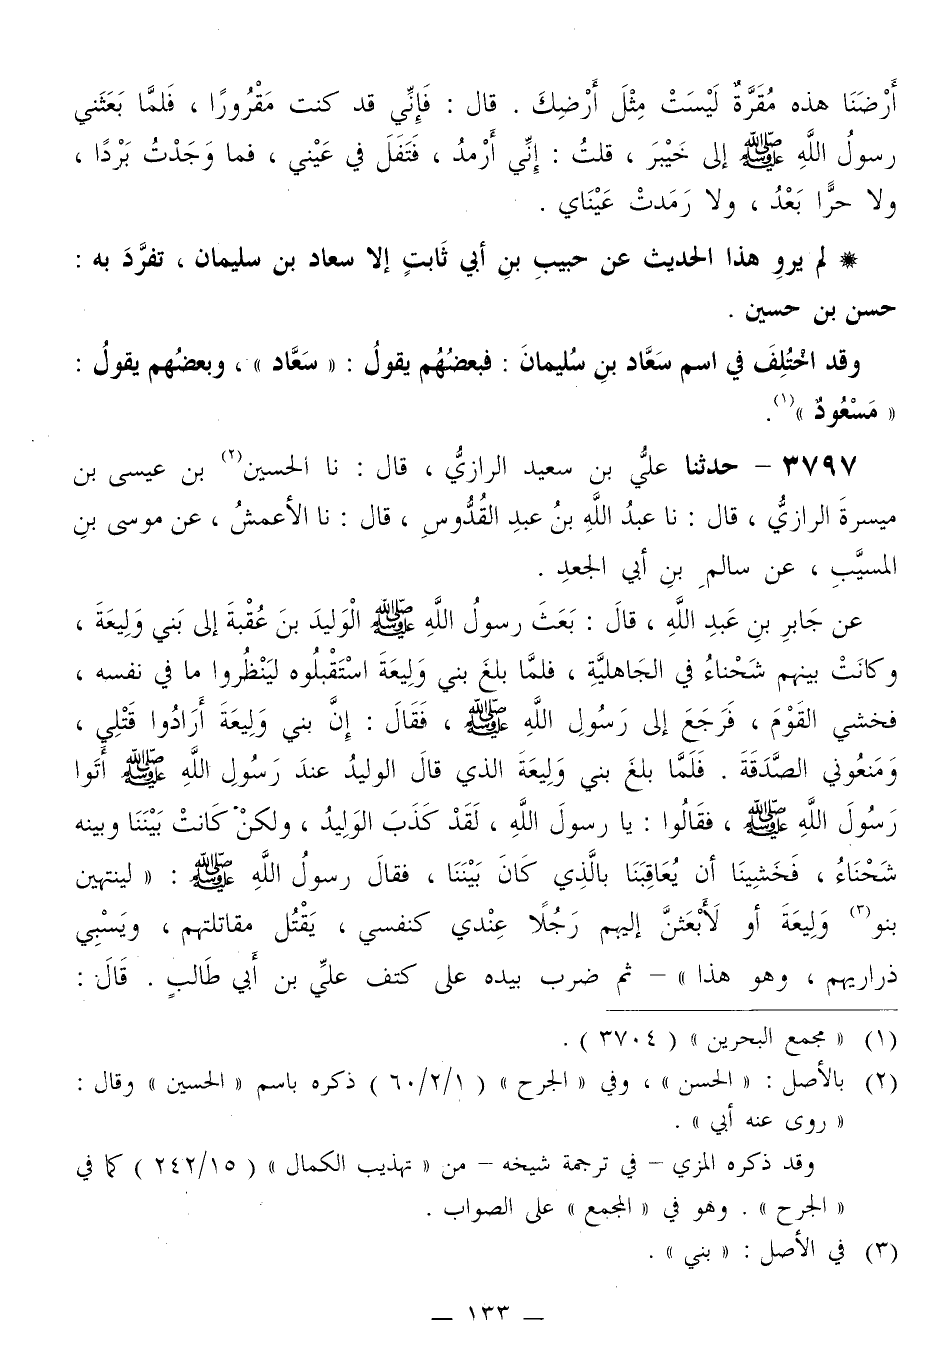 أَرْضَنَا هذه مُقَرَّةٌ لَيْسَتْ مِثْلَ أَرْضِكَ . قال : فَإِنِّي قد كنت مَقْرُورًا ، فَلمَّا بَعَثَني
رسولُ اللَّهِ ﷺ إلى خَيْبَرَ ، قلتُ : إِنِّي أَرْمدُ ، فَتَفَلَ في عَيْني ، فما وَجَدْتُ بَرْدًا ،
ولا حرًّا بَعْدُ ، ولا رَمَدتْ عَيْنَاي .
* لم يروِ هذا الحديث عن حبيبِ بنِ أبي ثَابتٍ إلا سعاد بن سليمان ، تفرَّدَ به :
حسن بن حسين .
وقد اخْتُلِفَ في اسم سَعَّاد بنِ سُليمانَ : فبعضُهُم يقولُ : « سَعَّاد » ، وبعضُهم يقولُ :
« مَسْعُودٌ »(١).
٣٧٩٧ - حدثنا عليُّ بن سعيد الرازيُّ ، قال : نا الحسين(٢) بن عيسى بن
ميسرةَ الرازيُّ ، قال : نا عبدُ اللَّهِ بنُ عبدِ القُدُّوسِ ، قال : نا الأعمشُ ، عن موسى بنِ
المسيَّبِ ، عن سالمِ بنِ أبي الجعدِ .
عن جَابرِ بنِ عَبدِ اللَّهِ ، قالَ : بَعَثَ رسولُ اللَّهِ ﷺ الْوَليدَ بنَ عُقْبةَ إلى بَني وَلِيعَةَ ،
وكانَتْ بينهم شَحْناءُ في الجَاهليَّةِ ، فلمَّا بلغَ بني وَلِيعَةَ اسْتَقْبلُوه ليَنْظُروا ما في نفسه ،
فخشي القَوْمَ ، فَرَجَعَ إلى رَسُولِ اللَّهِ ﷺ ، فَقَالَ : إنَّ بني وَلِيعَةَ أَرَادُوا قَتْلِي ،
وَمَنعُوني الصَّدَقَةَ . فَلَمَّا بلغَ بني وَلِيعَةَ الذي قالَ الوليدُ عندَ رَسُولِ اللَّهِ ﷺ أَتَوا
رَسُولَ اللَّهِ ﷺ ، فقَالُوا : يا رسولَ اللَّهِ ، لَقَدْ كَذَبَ الوَلِيدُ ، ولكنْ كَانتْ بَيْنَنَا وبينه
شَحْنَاءُ ، فَخَشِينَا أن يُعَاقِبَنَا بالَّذي كَانَ بَيْنَنَا ، فقالَ رسولُ اللَّهِ ﷺ : « لينتهين
بنو(٣) وَلِيعَةَ أو لَأَبْعَثنَّ إليهم رَجُلًا عِنْدي كنفسي ، يَقْتُل مقاتلتهم ، ويَسْبِي
ذراريهم ، وهو هذا » - ثم ضرب بيده على كتف عليِّ بن أَبي طَالبٍ . قَالَ :
(١) « مجمع البحرين » ( ٣٧٠٤ ) .
(٢) بالأصل : « الحسن » ، وفي « الجرح » ( ٦٠/٢/١ ) ذكره باسم « الحسين » وقال :
« روى عنه أبي » .
وقد ذكره المزي - في ترجمة شيخه - من « تهذيب الكمال » ( ٢٤٢/١٥ ) كما في
« الجرح » . وهو في « المجمع » على الصواب .
(٣) في الأصل : « بني » .
— ١٣٣ —